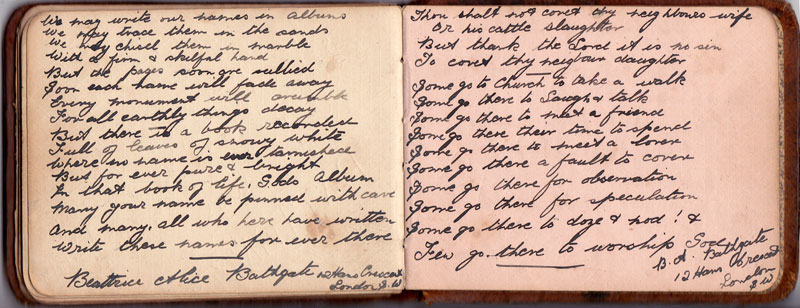 We may write our names in albums
We may trace them in the sands
We may chisel them in marble
With a firm & skilful hand
But the pages soon are sullied
Soon each name will fade away
Every monument will crumble
For all earthly things decay
But there is a book recorded
Full of leaves of snowy white
Where no name is ever tarnished
But for ever pure & bright
In that book of life, Gods Album
Many your name be pinned with care
And many, all who here have written
Write these names for ever there
Beatrice Alice Bathgate 12 Hans Crescent
London S.W
Thou shalt not covet thy neighbours wife
Or his cattle slaughter
But thank the Lord it is no sin
To covet thy neigbour daughter
Some go to Church to take a walk
Some go there to laugh & talk
Some go there to meet a friend
Some go there their time to spend
Some go there to meet a lover
Some go there a fault to cover
Some go there for observation
Some go there for speculation
Some go there to doze & nod! &
Few go there to worship God
B. A. Bathgate
12 Hans Crescent
London
S.W